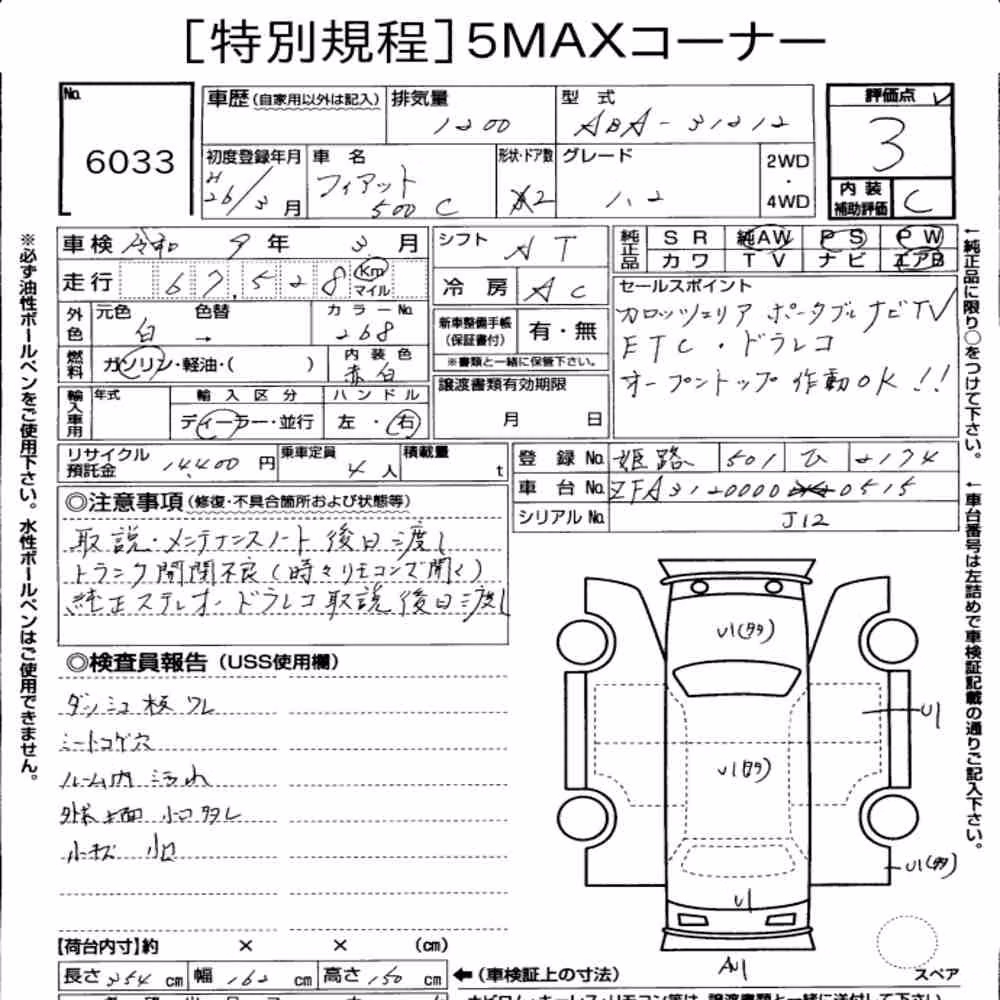 [特別規程] 5MAXコーナー
No. 6033
車歴 (自家用以外は記入)
排気量 1200
型式 ABA-31212
評価点 3
初度登録年月 H26/3月
車名 フィアット500C
形状・ドア数 2
グレード 1.2
2WD・4WD
内装補助評価 C
車検 令和 9年 3月
シフト AT
純正品 SR 純AW PS PW
カワ TV ナビ エアB
走行 67,528 Km マイル
冷房 AC
セールスポイント
カロッツェリア ポータブルナビTV
ETC・ドラレコ
オープントップ 作動OK!!
外色 元色 白 → 色替 カラーNo. 268
新車整備手帳(保証書付) 有・無
※書類と一緒に保管下さい。
燃料 ガソリン・軽油・( )
内装色 赤白
譲渡書類有効期限 月 日
輸入車用 年式 輸入区分 ディーラー・並行 ハンドル 左・右
リサイクル預託金 14,400円
乗車定員 4人
積載量 t
登録No. 姫路 501 ひ 2174
車台No. ZFA3120000 0515
シリアルNo. J12
◎注意事項(修復・不具合箇所および状態等)
取説・メンテナンスノート後日渡し
トランク開閉不良(時々リモコンで開く)
純正ステレオ・ドラレコ取説後日渡し
◎検査員報告(USS使用欄)
ダッシュ板ワレ
シートコゲ穴
ルーム内汚れ
外装上面小コタレ
小キズ 凹
U1(タタ)
U1
U1(タタ)
U1(タタ)
U1
AU1
スペア
【荷台内寸】約 × × (cm)
長さ 354cm 幅 162cm 高さ 150cm
←(車検証上の寸法)
※必ず油性ボールペンをご使用下さい。水性ボールペンはご使用できません。
←純正品に限り○をつけて下さい。
←車台番号は左詰めで車検証記載の通りご記入下さい。